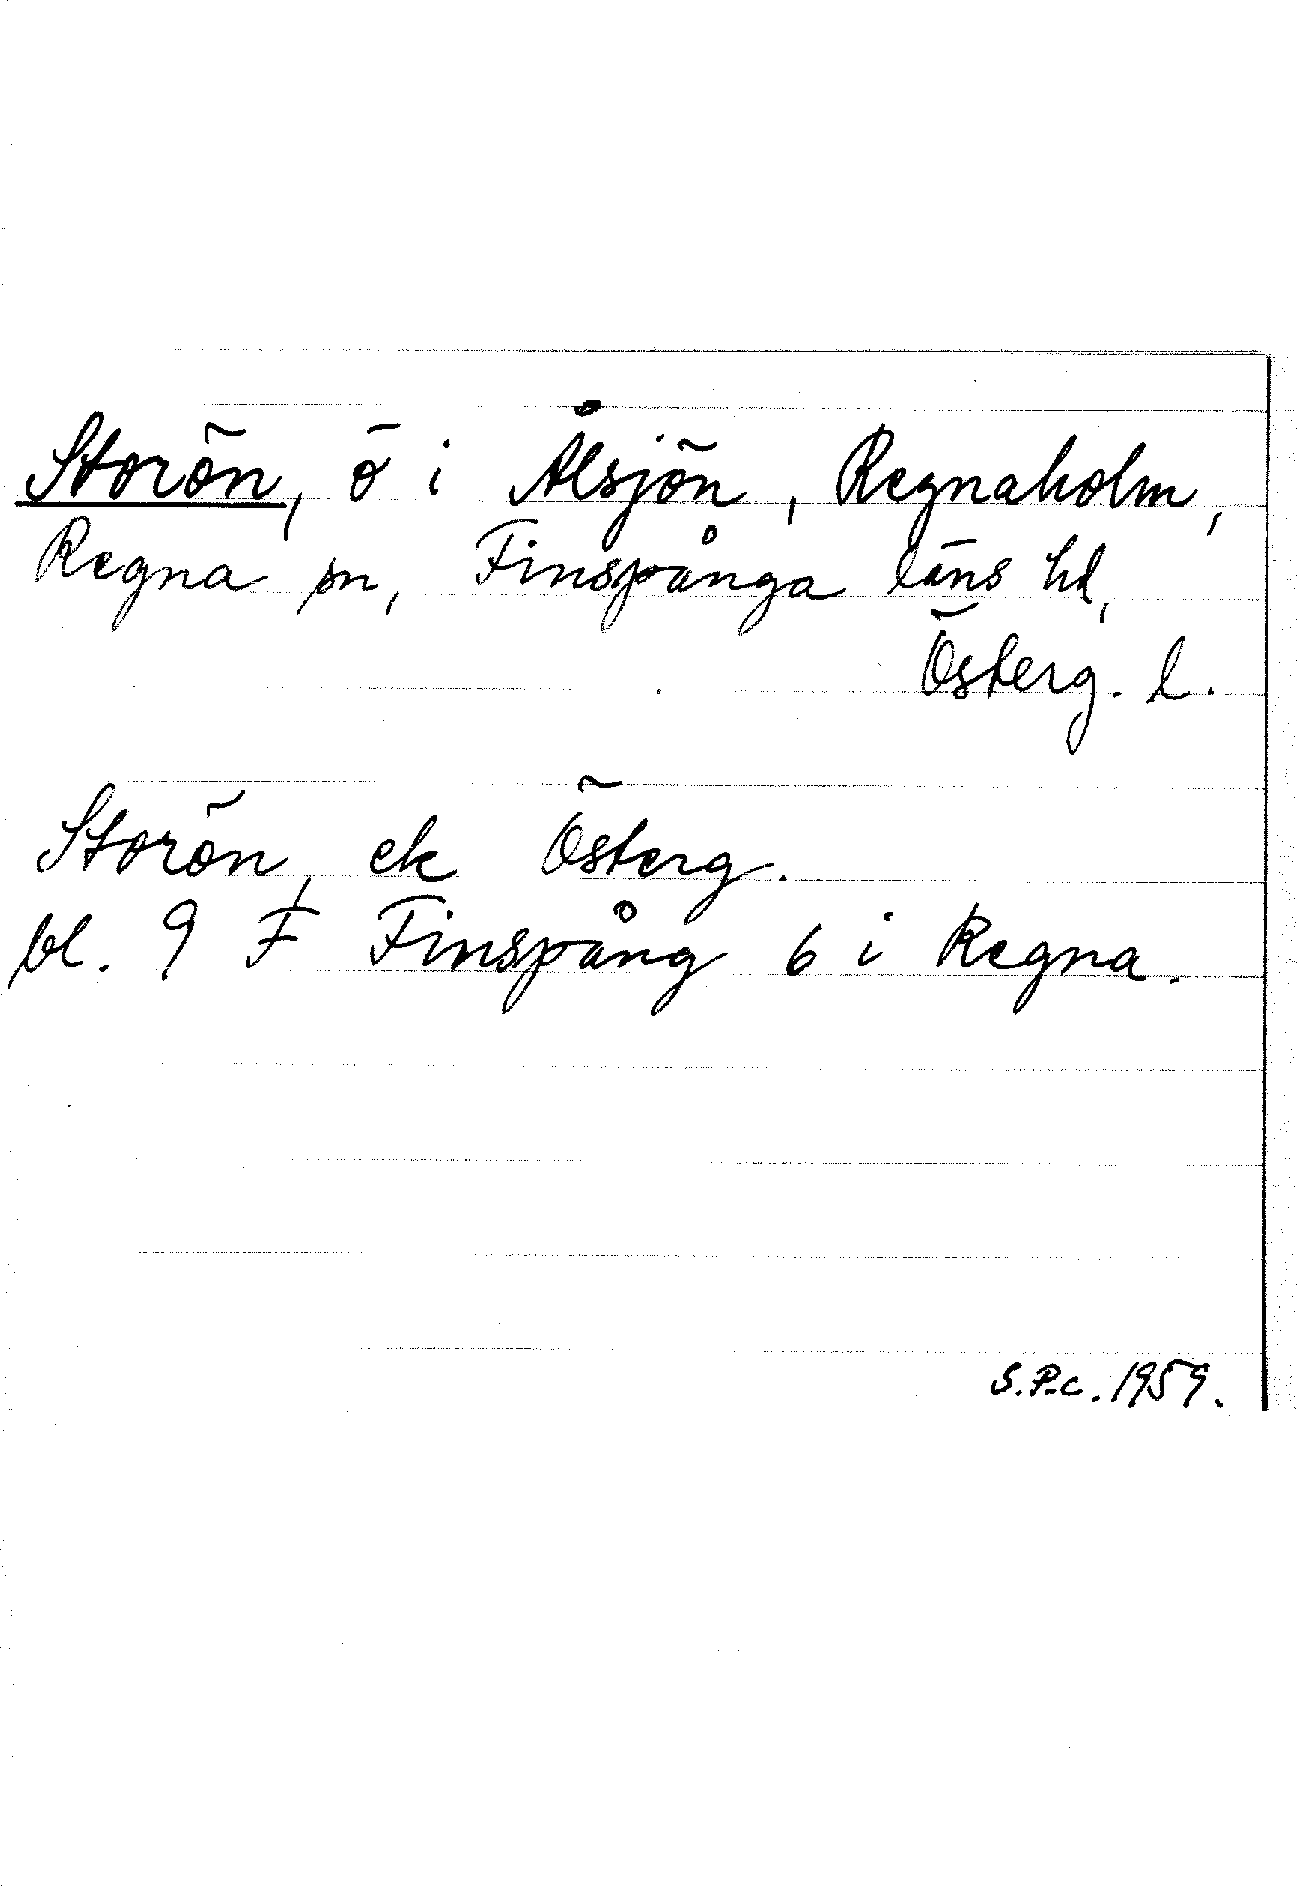 Storön, ö i Ålsjön, Regnaholm,
Regna sn, Finspånga läns hd,
Österg. l.
Storön, ek Österg.
bl. 9 F Finspång 6 i Regna.
S.P-c. 1959.